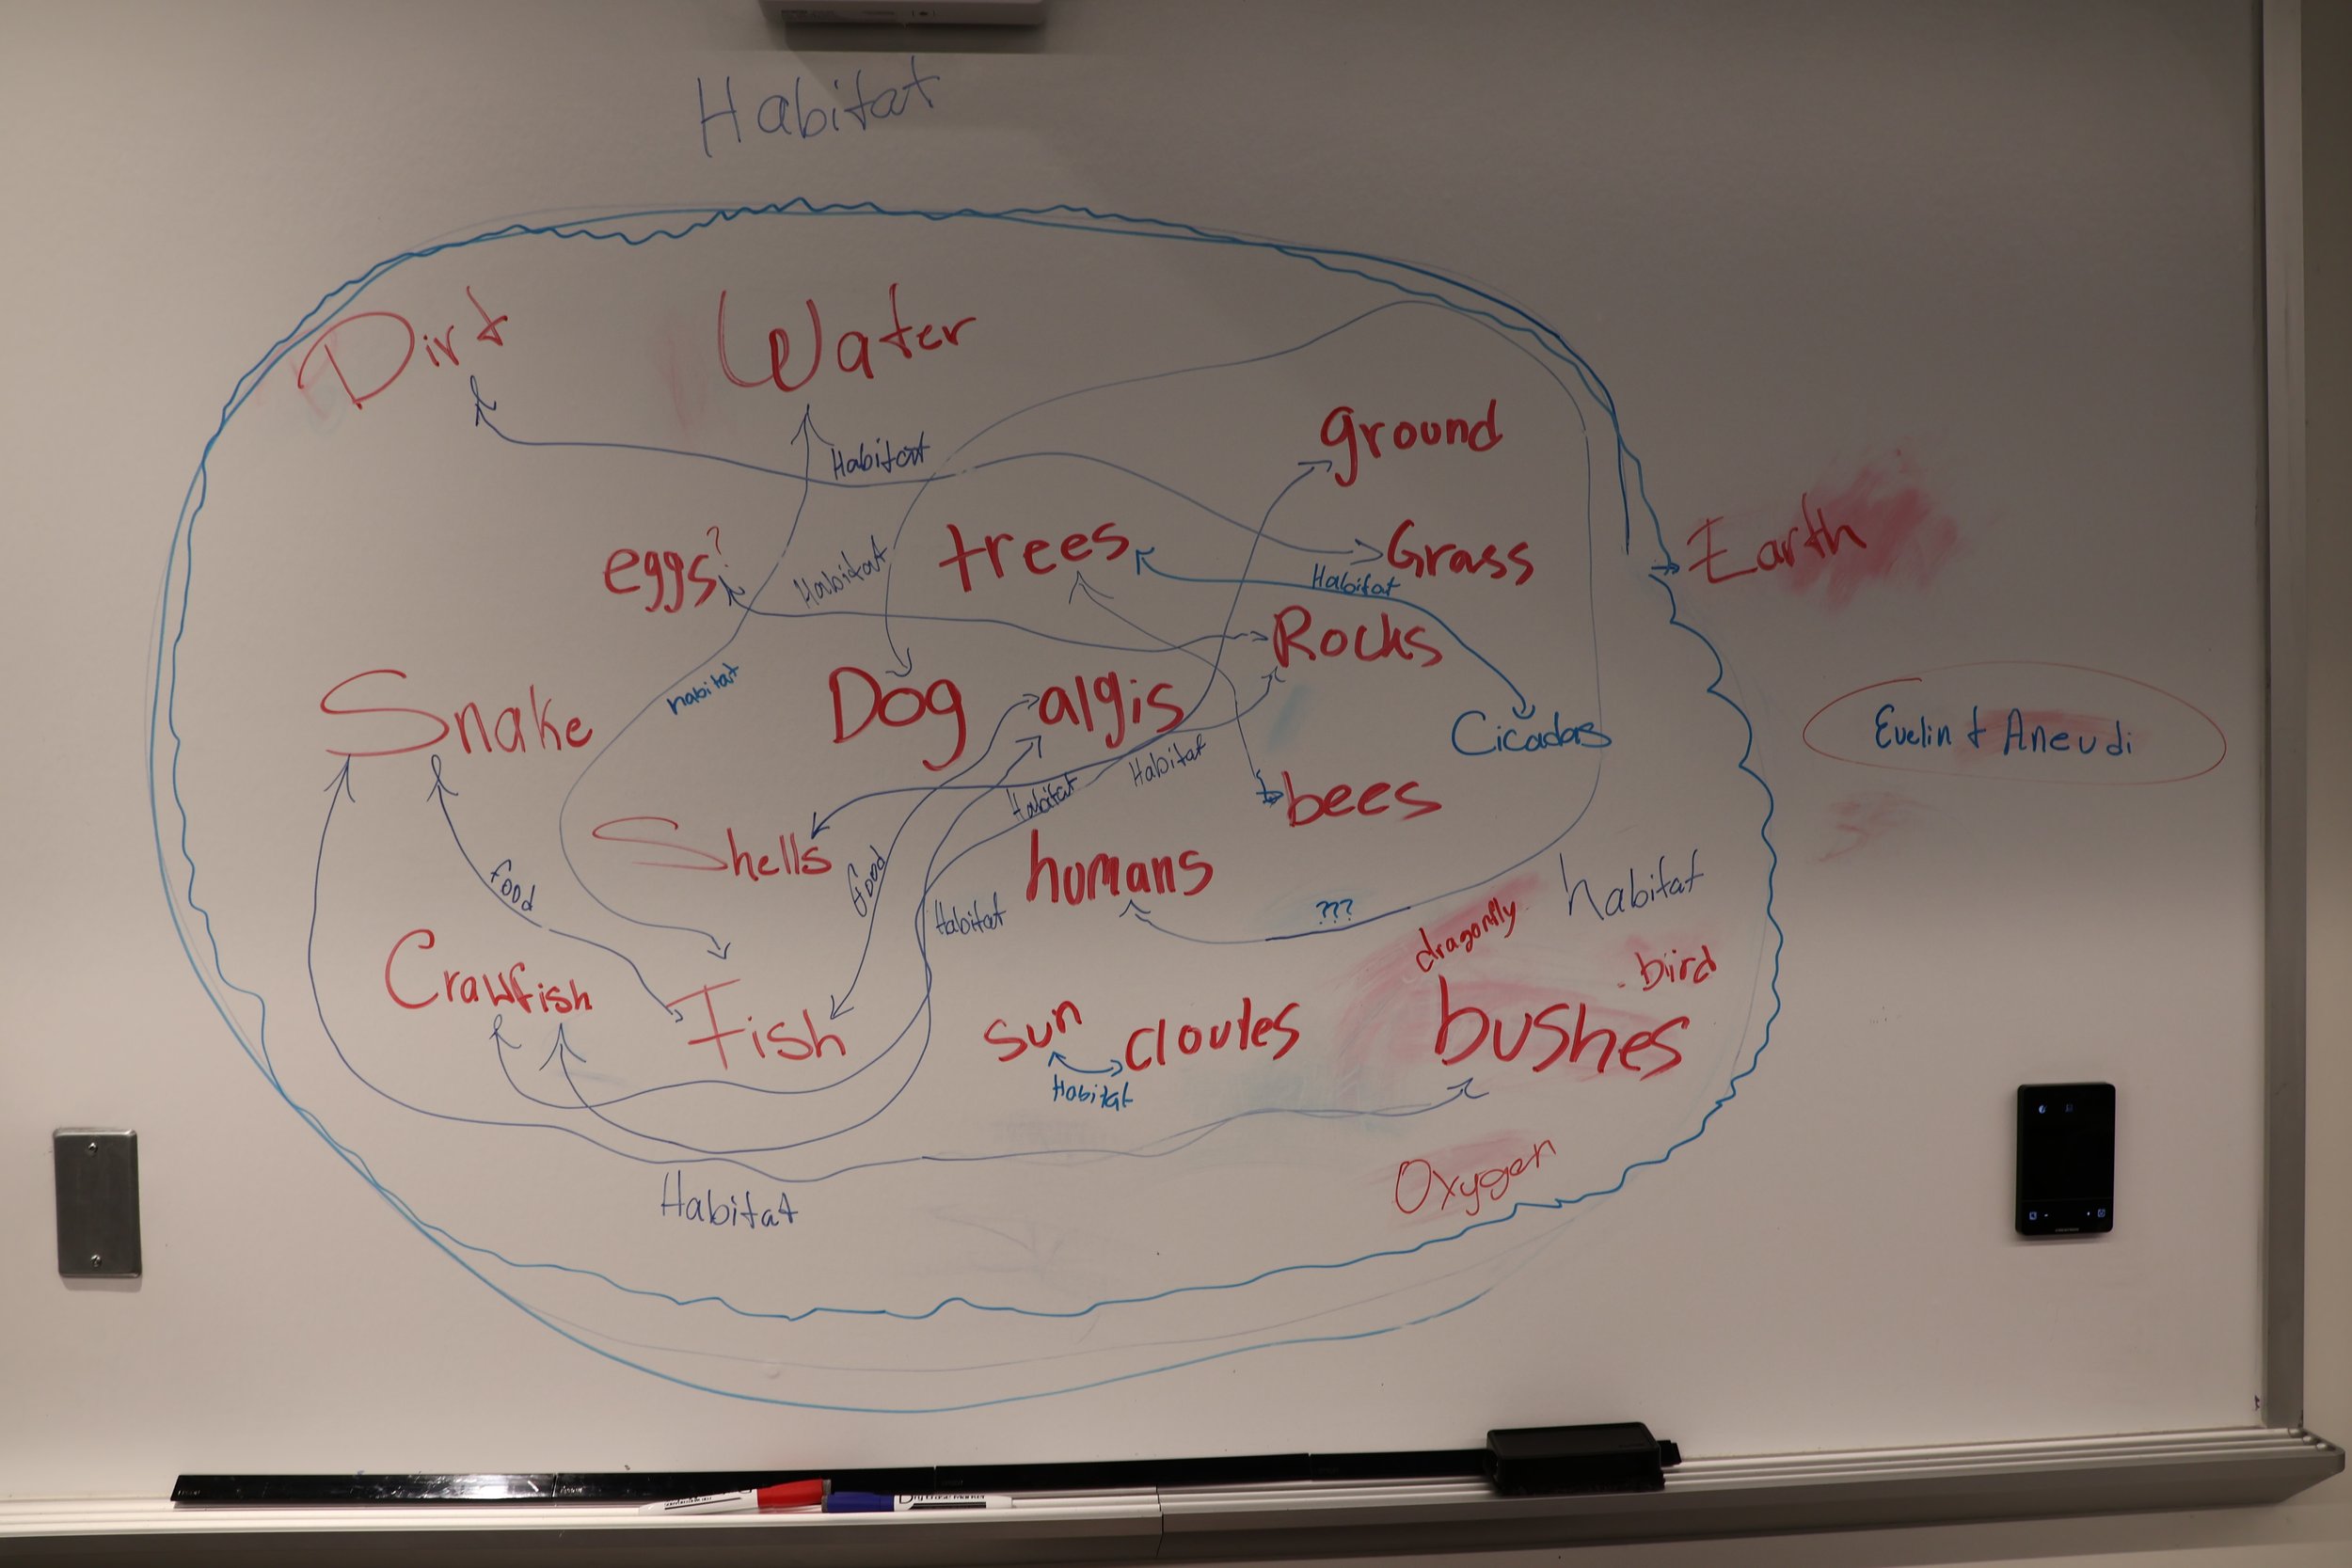 Habitat
Dirt
Water
Habitat
ground
eggs?
Habitat
trees
Grass
Habitat
Earth
Rocks
habitat
Snake
Dog
algis
Cicadas
Evelin + Aneudi
Habitat
Habitat
bees
Shells
Food
humans
habitat
Habitat
???
dragonfly
bird
Crawfish
Fish
sun
cloudes
bushes
Habitat
Oxygen
Habitat
Dry Erase Marker